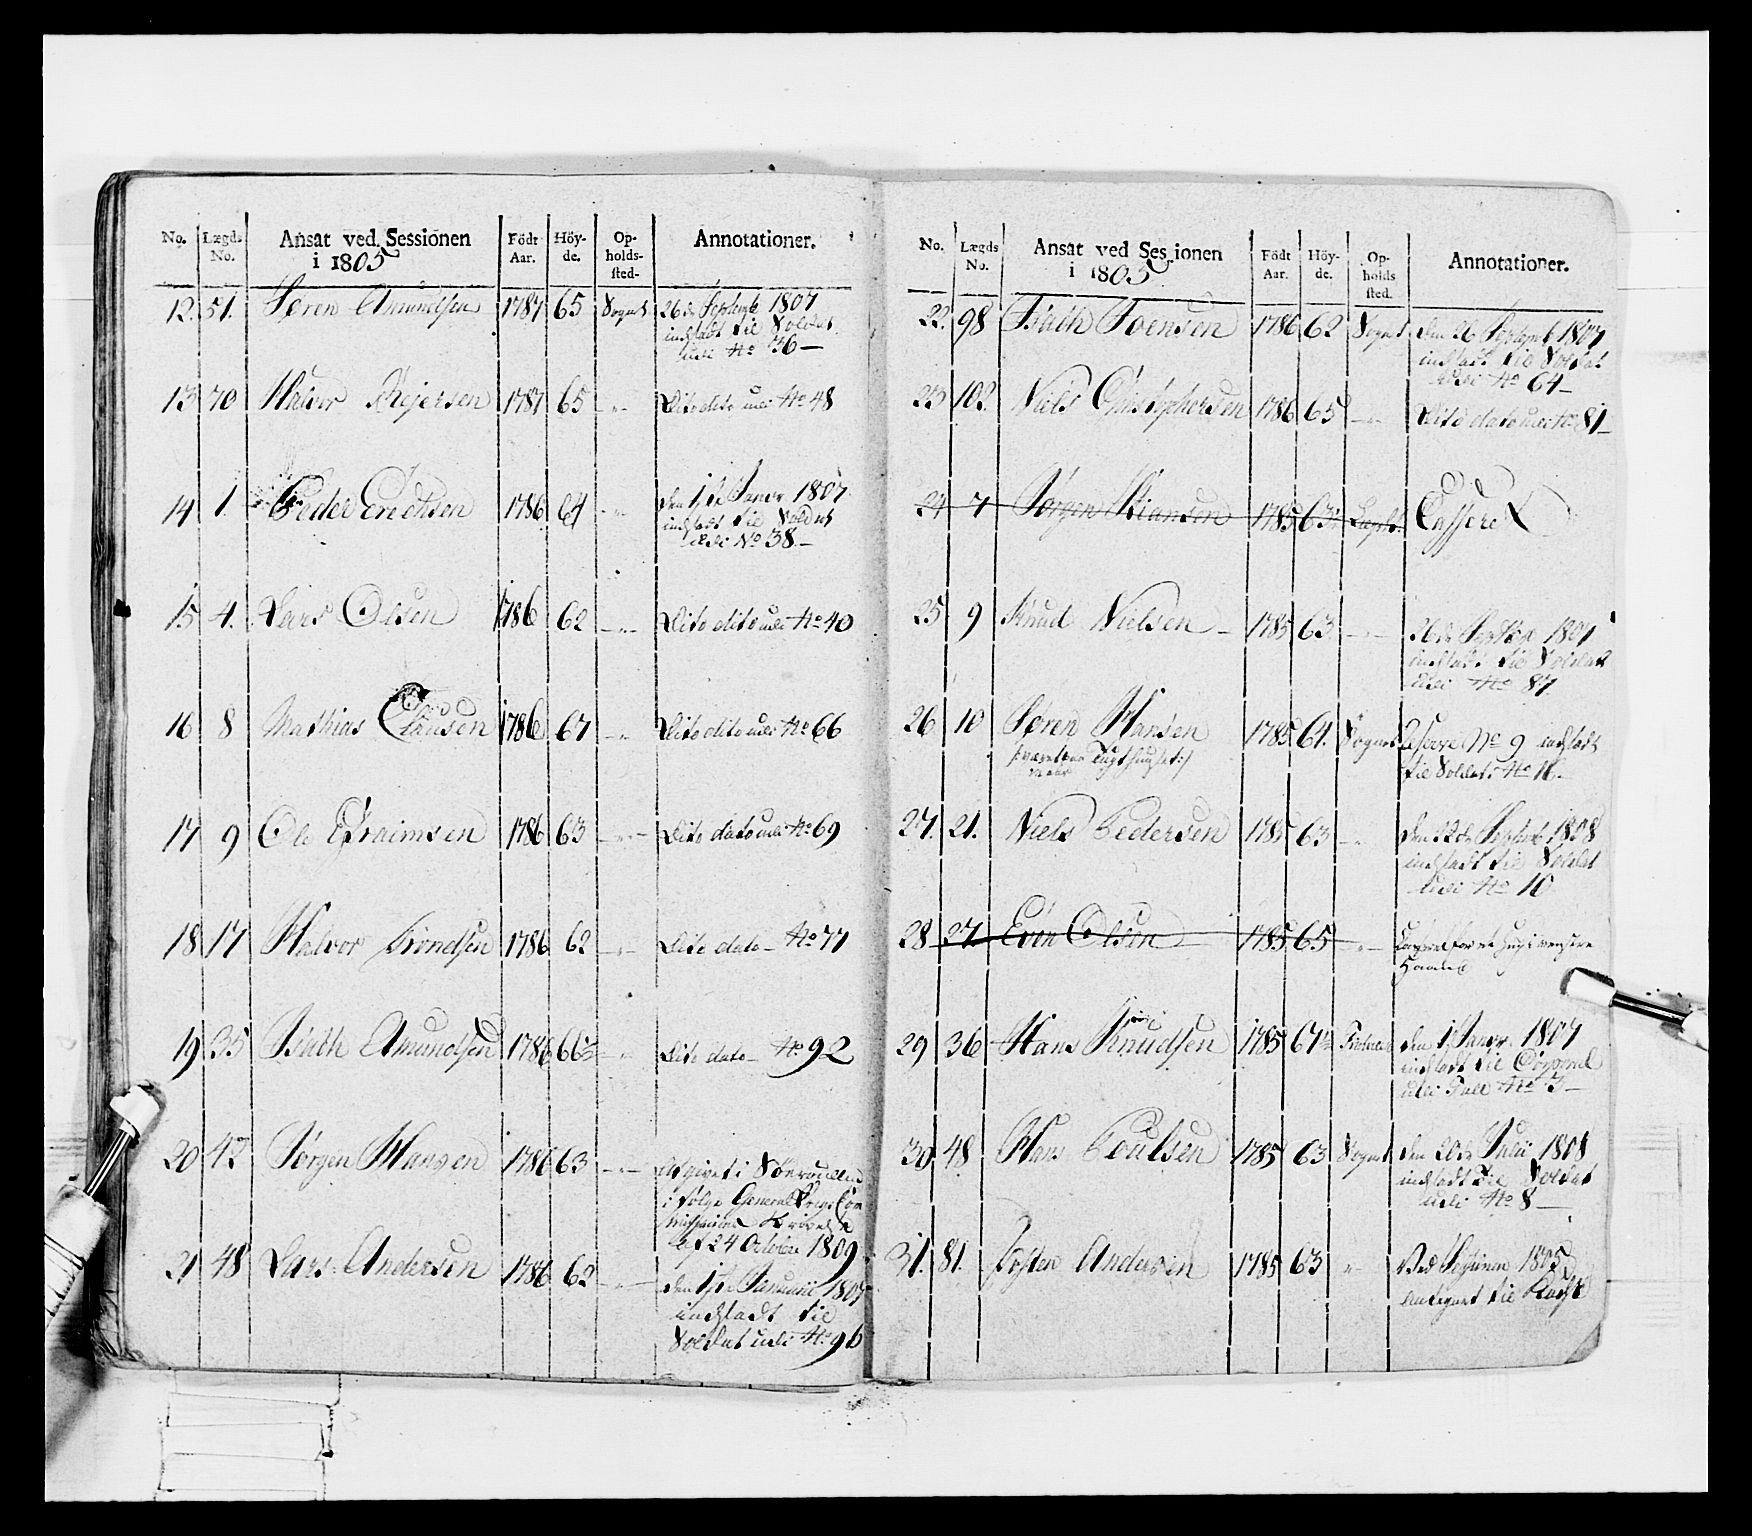 No. Lægds No. Ansat ved Sessionen i 1805 Födt Aar. Höy- de. Op- holds- sted. Annotationer.
12. 51. Søren Amundsen 1787 65 Sognet 26de Septemb 1807
indsadt til Soldat
udi No 36 —
13 70 Halvor Rejersen 1787 65 - „ - Dito dito udi No 48
14 1 Peder Erichsen 1786 64 - „ - den 1ste Janvr 1807
indsadt til Soldat
udi No 38 —
15 4. Lars Olsen 1786 62 - „ - Dito dito udi No 40
16 8 Mathias Clausen 1786 67 - „ - Dito dito udi No 66
17 9 Ole Efraimsen 1786 63 - „ - Dito dato udi No 69
18 17 Halvor Trondsen 1786 62 - „ - Dito dato - No 77
19 35 Amundsen 1786 66 - „ - Dito dato - No 92
20 42 Jørgen Hansen 1786 63 - „ - Afgivet i
i følge General Krigs Com
missairens
af 24 October 1809.
21 48 Lars Andersen 1786 62 - „ - den 1ste Januarii 1807
indsadt til
Soldat udi No 96
No. Lægds No. Ansat ved Sessionen i 1805 Födt Aar. Höy- de. Op- holds sted. Annotationer.
22. 98 Joensen 1786 62 Sognet den 26 Septemb 1807
indsadt til Soldat
udi No 64 —
23 102 Niels Christophersen 1786 65 - „ - Dito dato udi No 81 —
24 7 Jørgen Stiansen 1785 63 Cassert
25 9 Knud Nielsen - 1785 63 - „ - 26de Septbr 1807
indsadt til Soldat
udi No 87
26 10 Søren Hansen 1785 64. Sognet Reserve No 9 indsadt
Tugthuuset :/ til Soldat No 16 -
27. 21. Niels Pedersen 1785 63 - „ - den 12de Septemb 1808
indsadt til Soldat
udi No 10
28 27 Even Olsen 1785 65 - „ - hug i venstre
Haand
29 36 Hans Knudsen 1785 67 den 1 Janvr. 1807
indsadt til Corporal
udi Tall No 3 —
30 48 Hans Poulsen 1785 63 Sognet den 20de Julii 1808
indsadt til Soldat
udi No 8 —
31. 81. Josten Andersen 1785 63 „ Ved Sessionen 1805
til